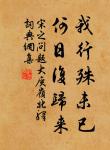 我行殊未已
何日復歸來
宋之問題大庾嶺北驛
詞典網集